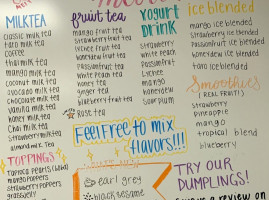 MILKTEA
classic milk tea
taro milk tea
coffee
thai milk tea
mango milk tea
coconut milk tea
avocado milk tea
chocolate milk tea
vanilla milk tea
honey milk tea
strawberry milk tea
almond milk tea
TOPPINGS
mango poppers
strawberry poppers
grass jelly
fruit tea
mango fruit tea
strawberry fruit tea
lychee fruit tea
honeydew fruit tea
passion fruit tea
white peach tea
honey tea
ginger tea
blueberry fruit tea
Rose tea
YOGURT
DRINK
strawberry
white peach
passionfruit
lychee
mango
honeydew
soursop
ice blended
mango ice blended
strawberry ice blended
passionfruit ice blended
honeydew ice blended
taro ice blended
Smoothies
(REAL FRUIT!)
strawberry
pineapple
mango
tropical blend
blueberry
Feel Free to mix
flavors!!!
earl grey
black sesame
TRY OUR
DUMPLINGS!
a review on